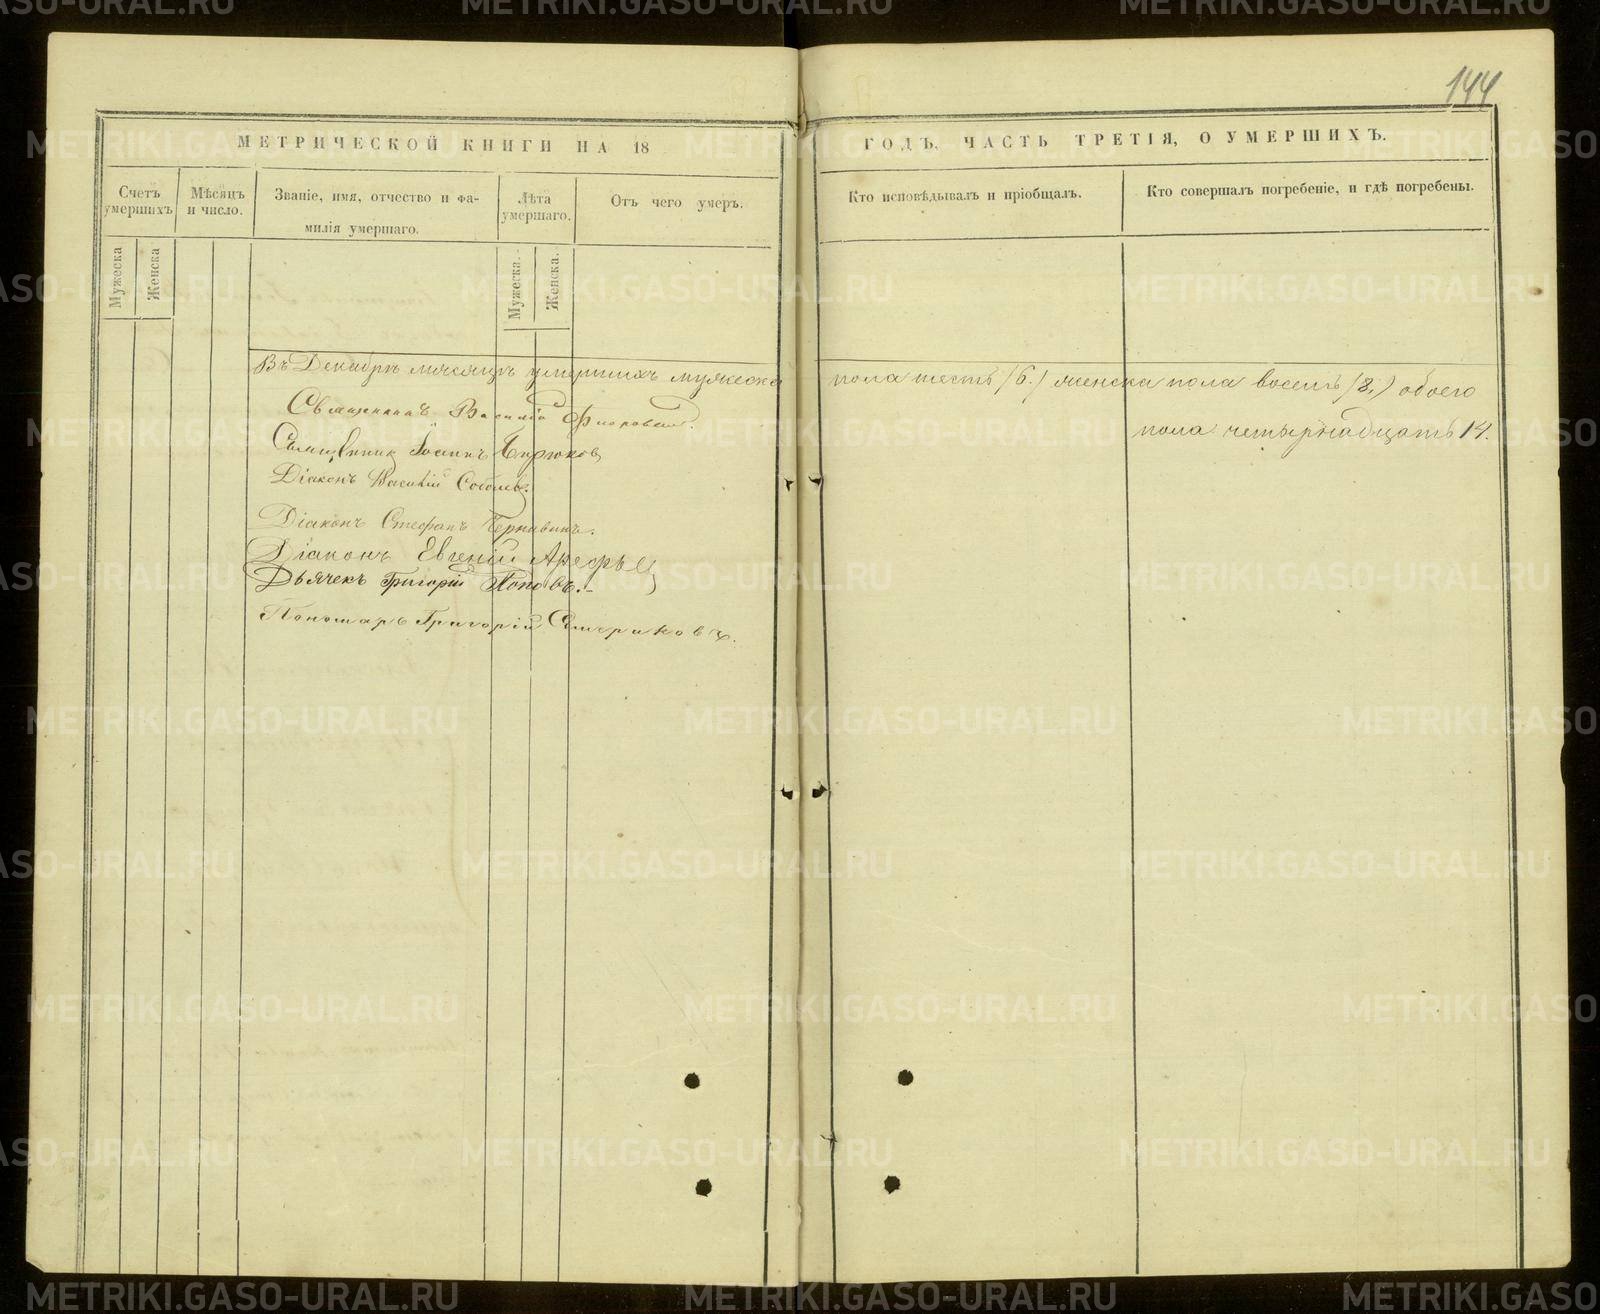 144
МЕТРИЧЕСКОЙ КНИГИ НА 18
ГОДЪ, ЧАСТЬ ТРЕТІЯ, О УМЕРШИХЪ.
Счетъ умершихъ
Мѣсяцъ и число.
Званіе, имя, отчество и фамилія умершаго.
Лѣта умершаго.
Отъ чего умеръ.
Кто исповѣдывалъ и пріобщалъ.
Кто совершалъ погребеніе, и гдѣ погребены.
Мужеска
Женска
Мужеска.
Женска.
Въ Декабрѣ мѣсяцѣ умершихъ мужеска пола шесть (6.) женска пола восемь (8.) обоего
пола четырнадцать 14.
Священникъ Василій
Священникъ Іоаннъ Бирюковъ
Діаконъ Василій
Діаконъ Стефанъ Чернавинъ.
Діаконъ Евгеній Арефьевъ
Дьячекъ Григорій Поповъ.
Пономарь Григорій
METRIKI.GASO-URAL.RU